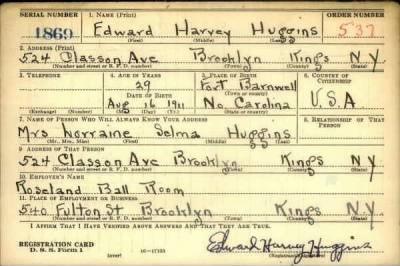 SERIAL NUMBER 1. NAME (Print) ORDER NUMBER
1869 Edward Harvey Huggins 537
(First) (Middle) (Last)
2. ADDRESS (Print)
524 Classon Ave Brooklyn Kings N Y
(Number and street or R. F. D. number) (Town) (County) (State)
3. TELEPHONE 4. AGE IN YEARS 5. PLACE OF BIRTH 6. COUNTRY OF CITIZENSHIP
29 Fort Barnwell
DATE OF BIRTH (Town or county)
Aug 16 1911 No Carolina U.S.A
(Exchange) (Number) (Mo.) (Day) (Yr.) (State or country)
7. NAME OF PERSON WHO WILL ALWAYS KNOW YOUR ADDRESS 8. RELATIONSHIP OF THAT PERSON
Mrs Lorraine Selma Huggins
(Mr., Mrs., Miss) (First) (Middle) (Last)
9. ADDRESS OF THAT PERSON
524 Classon Ave Brooklyn Kings N Y
(Number and street or R. F. D. number) (Town) (County) (State)
10. EMPLOYER'S NAME
Roseland Ball Room
11. PLACE OF EMPLOYMENT OR BUSINESS
540 Fulton St Brooklyn Kings N Y
(Number and street or R. F. D. number) (Town) (County) (State)
I AFFIRM THAT I HAVE VERIFIED ABOVE ANSWERS AND THAT THEY ARE TRUE.
REGISTRATION CARD
D. S. S. Form 1 (over) Edward Harvey Huggins